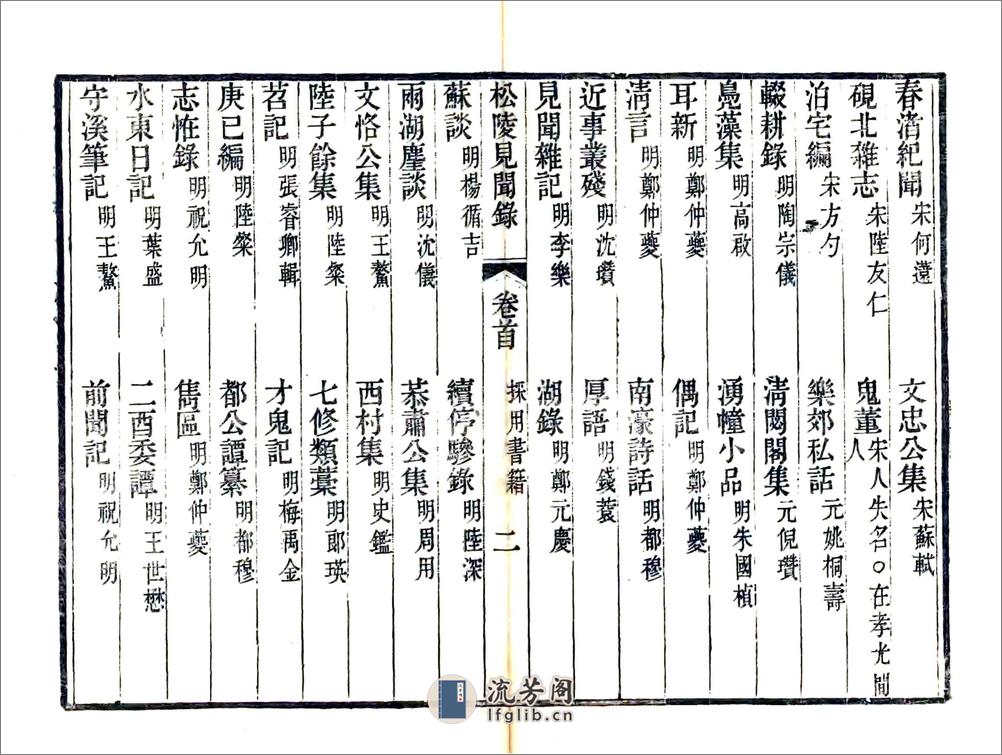 春渚紀聞 宋何薳 文忠公集 宋蘇軾
硯北雜志 宋陸友仁 鬼董 宋人失名○在孝光間人
泊宅編 宋方勺 樂郊私話 元姚桐壽
輟耕錄 明陶宗儀 淸閟閣集 元倪瓚
鳧藻集 明高啟 湧幢小品 明朱國楨
耳新 明鄭仲夔 偶記 明鄭仲夔
淸言 明鄭仲夔 南濠詩話 明都穆
近事叢殘 明沈瓚 厚語 明錢蓘
見聞雜記 明李樂 湖錄 明鄭元慶
松陵見聞錄 卷首 採用書籍 二
蘇談 明楊循吉 續停驂錄 明陸深
雨湖塵談 明沈儀 恭肅公集 明周用
文恪公集 明王鏊 西村集 明史鑑
陸子餘集 明陸粲 七修類藁 明郞瑛
苕記 明張睿卿輯 才鬼記 明梅禹金
庚巳編 明陸粲 都公譚纂 明都穆
志恠錄 明祝允明 雋區 明鄭仲夔
水東日記 明葉盛 二酉委譚 明王世懋
守溪筆記 明王鏊 前聞記 明祝允明
流芳阁
lfglib.cn